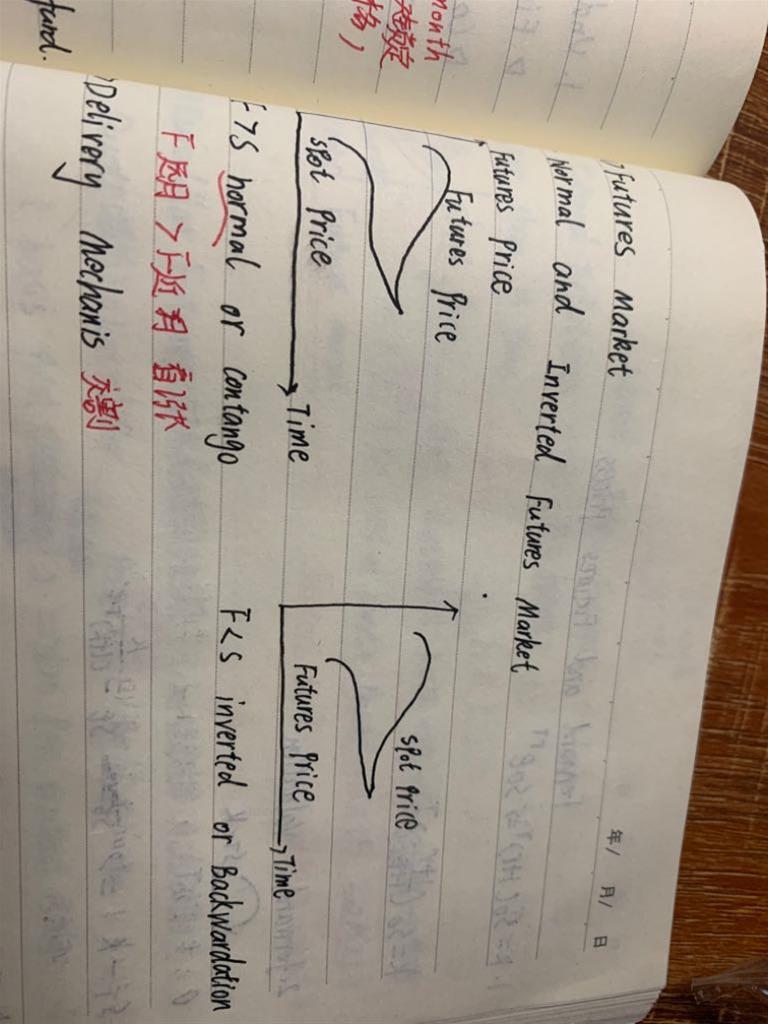 month
格)
fund.
年/ 月/ 日
) Futures Market
Normal and Inverted Futures Market
Futures Price
Futures Price
spot price
Time
spot price
Futures Price
Time
F>S normal or contango
F<S inverted or Backwardation
F远月 > F近月 看涨
Delivery Mechanis 交割